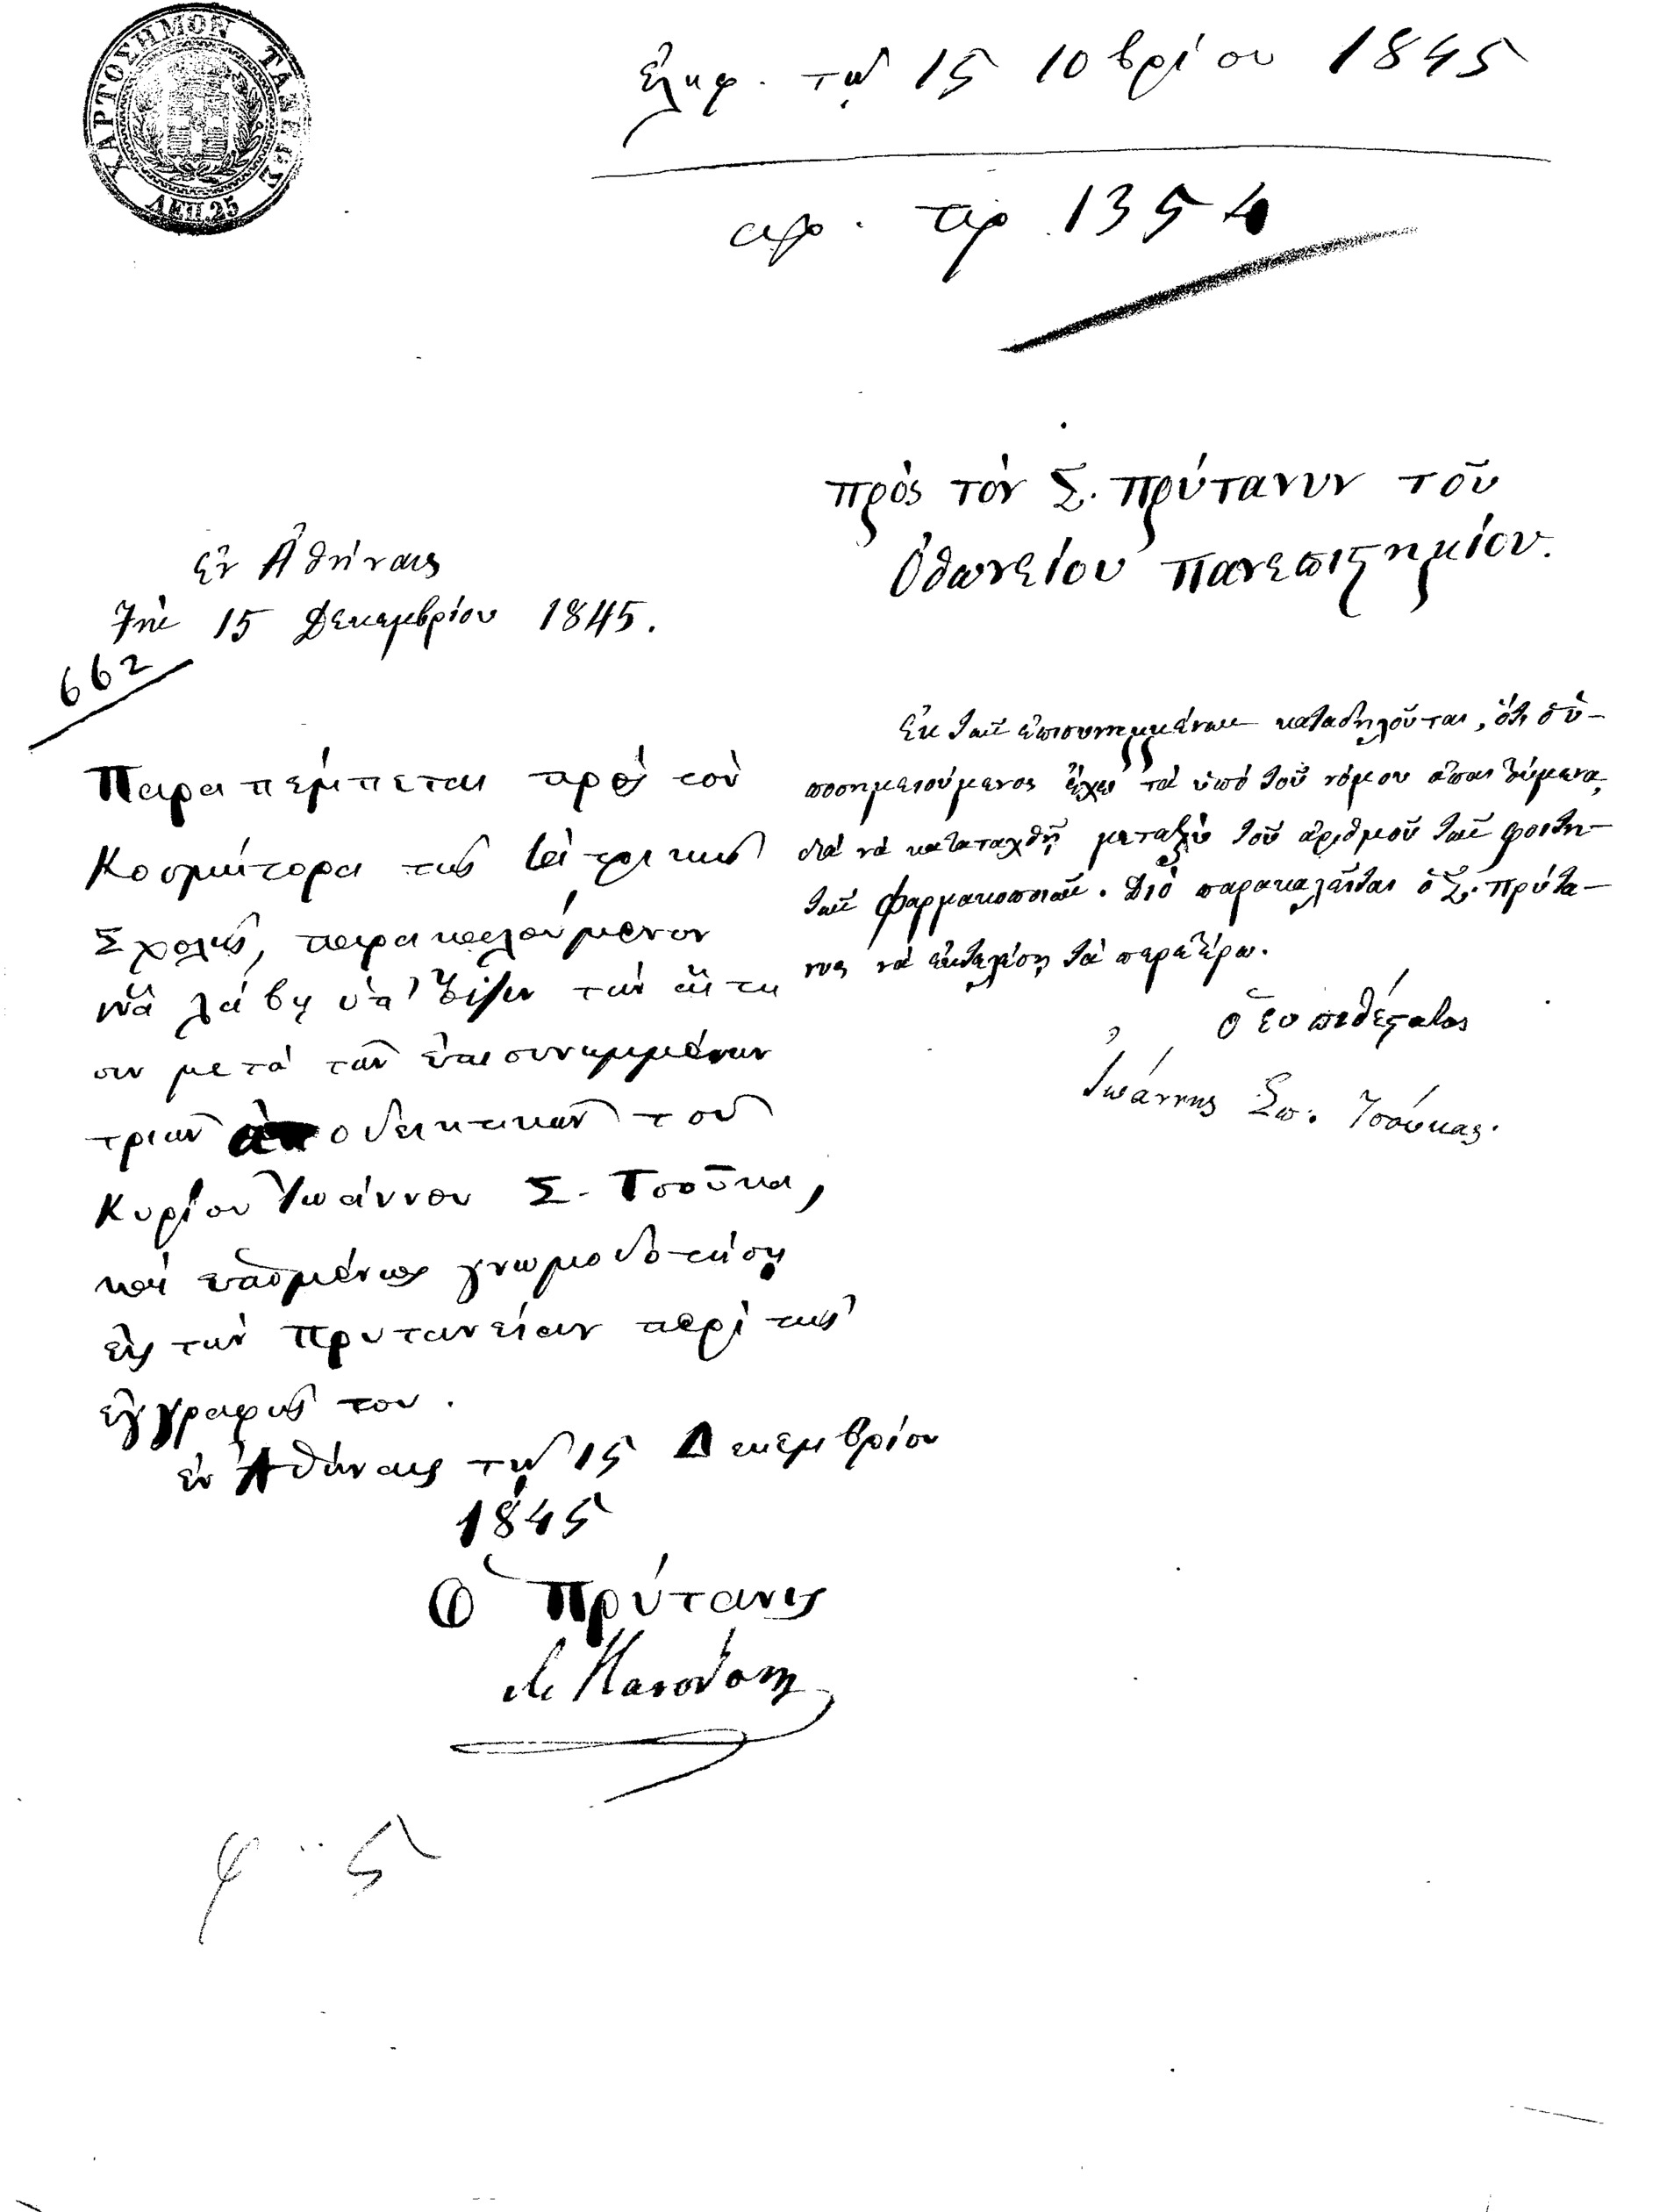 ΧΑΡΤΟΣΗΜΟΝ ΤΑΞΕΩΣ
ΛΕΠ.25
ἐλήφ. τῇ 15 10βρίου 1845
ἀρ. πρ 1354
πρὸς τὸν Σ. πρύτανυν τοῦ
Ὀθωνείου πανεπιστημίου.
Ἐν Ἀθήναις
Τῇ 15 Δεκεμβρίου 1845.
662
Ἐκ τῶν ἐπισυνημμένων καταδηλοῦται, ὅτι ὁ ὑ-
ποσημειούμενος ἔχει τὰ ὑπὸ τοῦ νόμου ἀπαιτούμενα,
διὰ νὰ καταταχθῇ μεταξὺ τοῦ ἀριθμοῦ τῶν φοιτη-
τῶν φαρμακοποιῶν. Διὸ παρακαλεῖται ὁ Σ. πρύτα-
νις νὰ ἐκτελέσῃ τὰ περαιτέρω.
ὁ εὐπειθέστατος
Ἰωάννης Σπ. Τσούκας.
Παραπέμπεται πρὸς τὸν
Κοσμήτορα τῆς ἰατρικῆς
Σχολῆς, παρακαλούμενον
νὰ λάβῃ ὑπ' ὄψιν τὴν αἴτη
σιν μετὰ τῶν ἐπισυνημμένων
τριῶν ἀποδεικτικῶν τοῦ
Κυρίου Ἰωάννου Σ. Τσούκα,
καὶ ἑπομένως γνωμοδοτήσῃ
εἰς τὴν Πρυτανείαν περὶ τῆς
ἐγγραφῆς του.
ἐν Ἀθήναις τῇ 15 Δεκεμβρίου
1845
Ὁ Πρύτανις